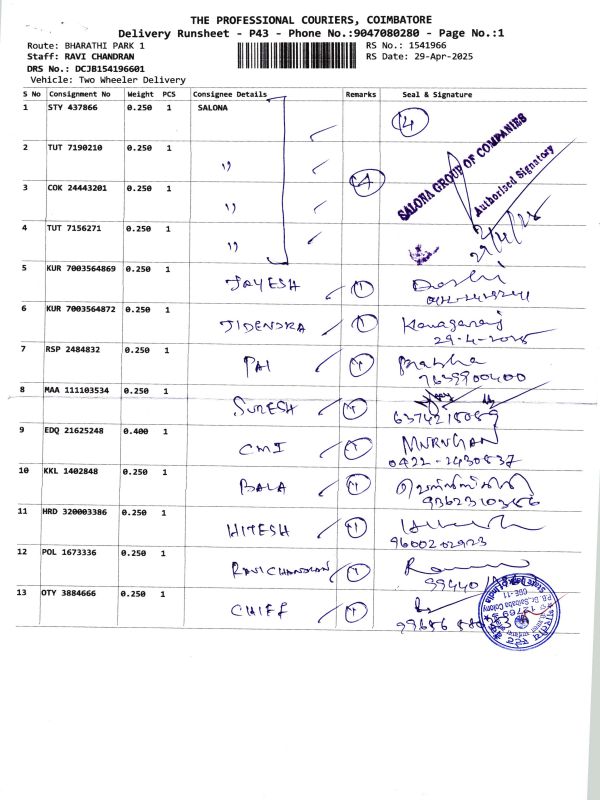 THE PROFESSIONAL COURIERS, COIMBATORE
Delivery Runsheet - P43 - Phone No.:9047080280 - Page No.:1
Route: BHARATHI PARK 1 RS No.: 1541966
Staff: RAVI CHANDRAN RS Date: 29-Apr-2025
DRS No.: DCJB154196601
Vehicle: Two Wheeler Delivery
S No Consignment No Weight PCS Consignee Details Remarks Seal & Signature
1 STY 437866 0.250 1 SALONA 4
SALONA GROUP OF COMPANIES
Authorised Signatory
2 TUT 7190210 0.250 1 "
3 COK 24443201 0.250 1 "
4 TUT 7156271 0.250 1 "
29/4/25
5 KUR 7003564869 0.250 1 JAYESH 1
6 KUR 7003564872 0.250 1 JIDENDRA 1 Kanagaraj
29-4-2025
7 RSP 2484832 0.250 1 PAI 1
7639900400
8 MAA 111103534 0.250 1 SURESH 1
6374218089
9 EDQ 21625248 0.400 1 CMI 1 MURUGAN
0422-2430837
10 KKL 1402848 0.250 1 BALA 1
9362310386
11 HRD 320003386 0.250 1 HITESH 1
9600202923
12 POL 1673336 0.250 1 RAVICHANDRAN 1
99440
13 OTY 3884666 0.250 1 CHIEF 1